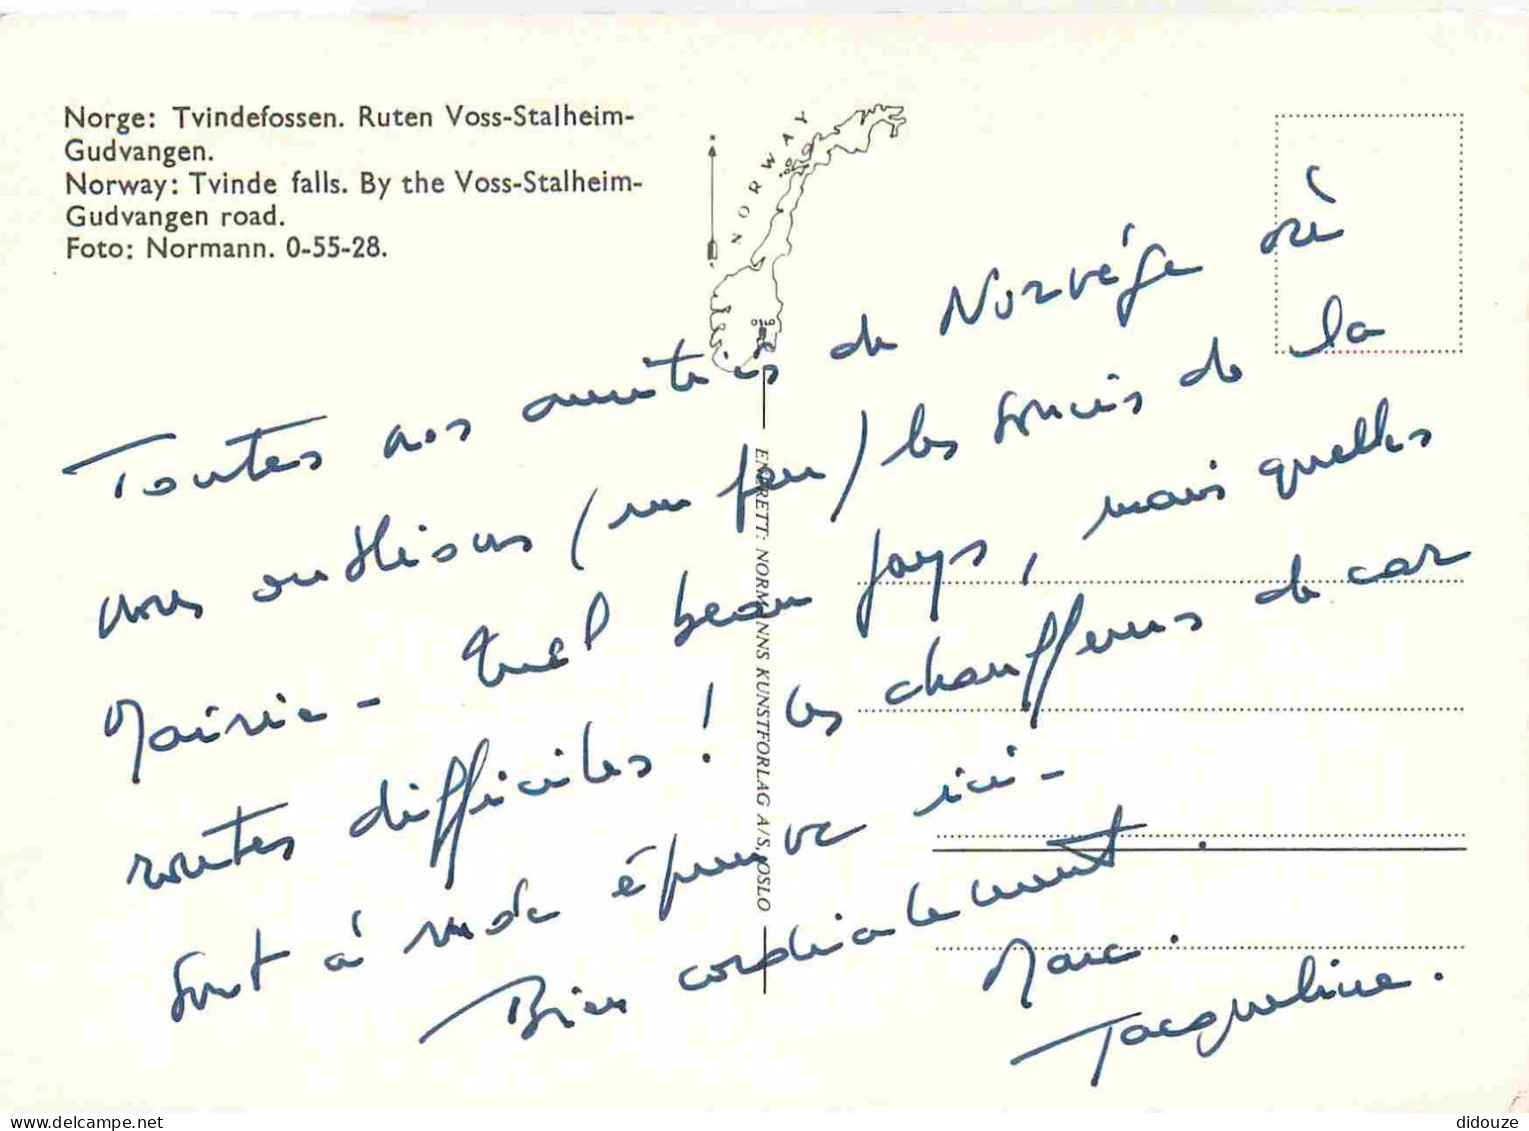 Norge: Tvindefossen. Ruten Voss-Stalheim-
Gudvangen.
Norway: Tvinde falls. By the Voss-Stalheim-
Gudvangen road.
Foto: Normann. 0-55-28.
NORWAY
ENERETT: NORMANNS KUNSTFORLAG A/S, OSLO
Toutes nos amitiés de Norvège où
nous oublions (un peu) les soucis de la
Mairie - Quel beau pays, mais quelles
routes difficiles ! les chauffeurs de car
sont à rude épreuve ici -
Bien cordialement.
Marc.
Jacqueline.
didouze